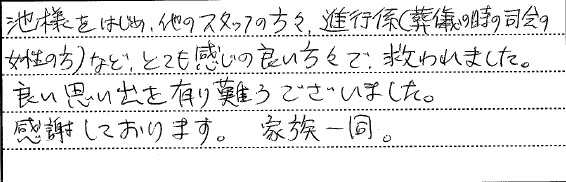 池様をはじめ、他のスタッフの方々、進行係(葬儀の時の司会の
女性の方)など、とても感じの良い方々で、救われました。
良い思い出を有り難うございました。
感謝しております。 家族一同。